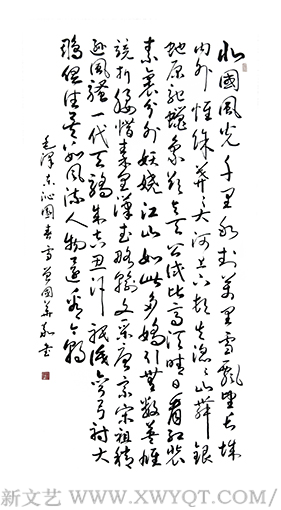 北國風光千里冰封萬里雪飄望長城
内外惟餘莽莽大河上下頓失滔滔山舞銀
蛇原馳蠟象欲與天公試比高須晴日看紅裝
素裹分外妖嬈江山如此多嬌引無數英雄
競折腰惜秦皇漢武略輸文采唐宗宋祖稍
遜風騷一代天驕成吉思汗祇識彎弓射大
鵰俱往矣數風流人物還看今朝
毛澤东沁園春雪
新文艺 WWW.XWYQT.COM/